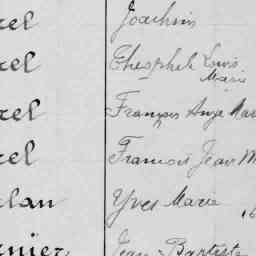 rel Joachim
rel Théophile Louis
Marie
rel François Ange Mar
rel François Jean M
rlan Yves Marie
rnier Jean Baptiste